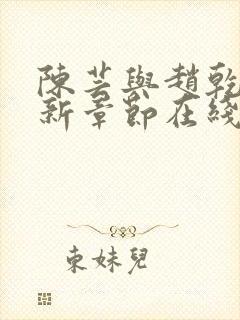 陳芸與趙乾
新章節在綫
東妹兒